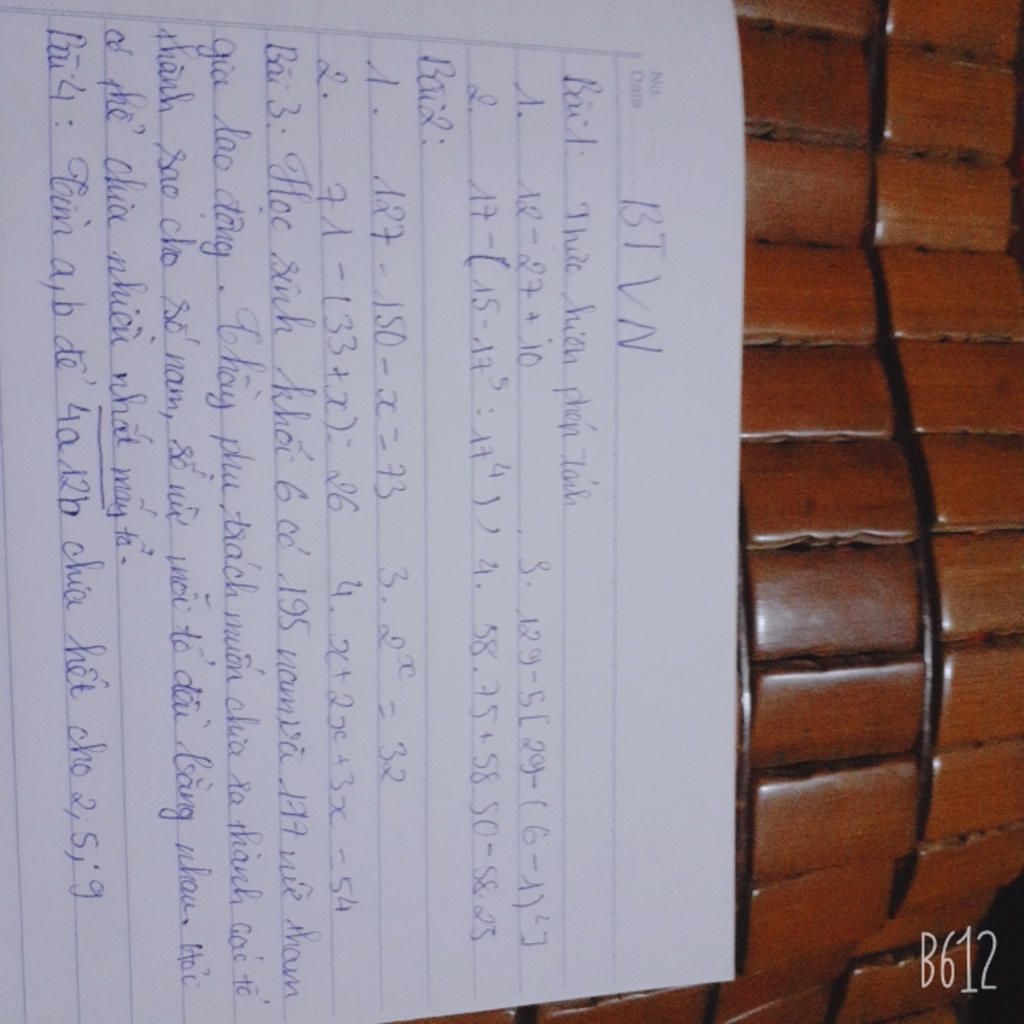 No.
Date
BTVN
Bài 1: Thực hiện phép tính
1. 12 - 27 + 10 3. 129 - 5[29 - (6 - 1)²]
2. 17 - (15 - 17⁵ : 17⁴) 4. 58.75 + 58.50 - 58.25
Bài 2:
1. 127 - 150 - x = 73 3. 2ˣ = 32
2. 71 - (33 + x) = 26 4. x + 2x + 3x = 54
Bài 3: Học sinh khối 6 có 195 nam và 177 nữ tham
gia lao động. Thầy phụ trách muốn chia ra thành các tổ
thành sao cho số nam, số nữ mỗi tổ đều bằng nhau. Hỏi
có thể chia nhiều nhất mấy tổ.
Bài 4: Tìm a, b để 4a12b chia hết cho 2; 5; 9
B612